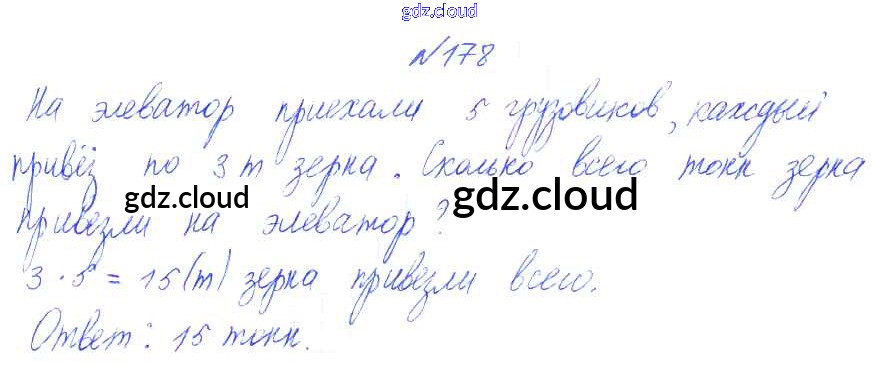 gdz.cloud
№178
На элеватор приехали 5 грузовиков, каждый
привёз по 3 т зерна. Сколько всего тонн зерна
gdz.cloud gdz.cloud
привезли на элеватор?
3 · 5 = 15 (т) зерна привезли всего.
Ответ: 15 тонн.